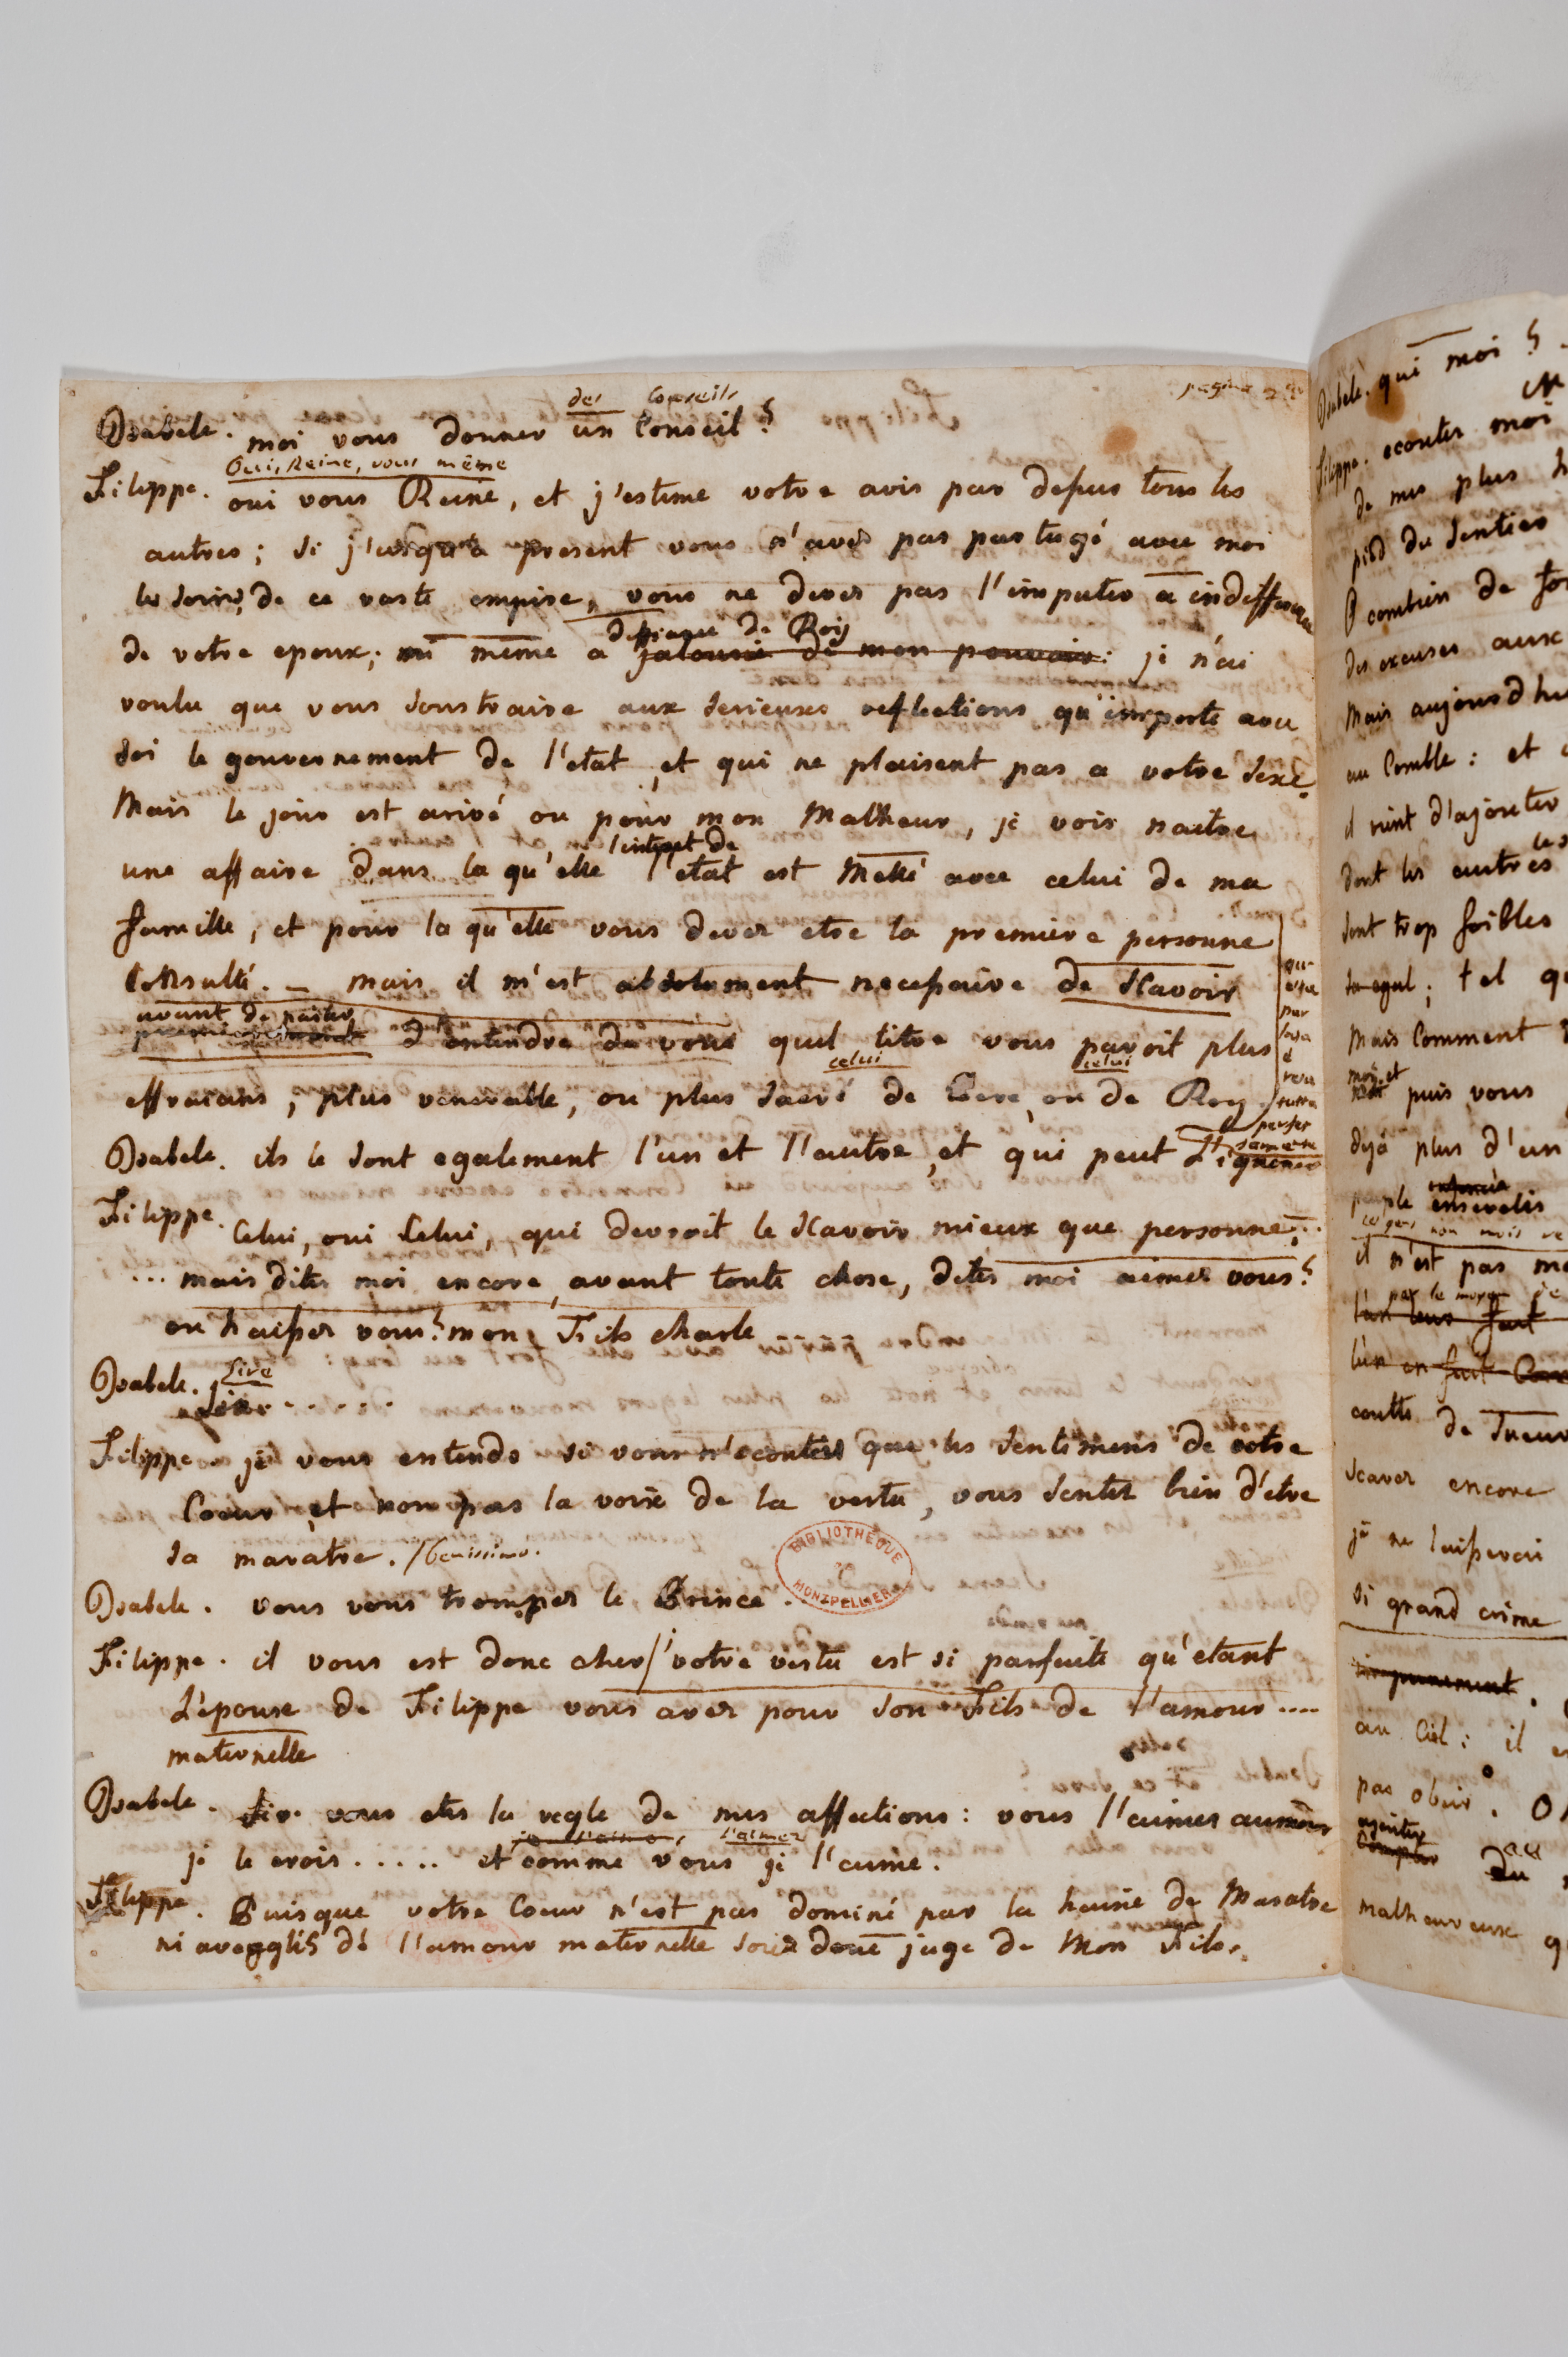 des Conseils
Isabele. moi vous donner un Conseil ?
Oui, Reine, vous même
Filippe. oui vous Reine, et j'estime votre avis par dessus tous les
autres ; si j'usqu'a present vous n'avés pas partagé avec moi
les soins, de ce vaste empire, vous ne devés pas l'imputer a indifference
deffiance de Roy
de votre epoux ; ni même a jalousie de mon pouvoir : je n'ai
voulu que vous soustraire aux serieuses reflections qu'importe avec
soi le gouvernement de l'etat, et qui ne plaisent pas a votre sexe.
Mais le jour est arivé ou pour mon Malheur, je vois naitre
l'interet de
une affaire dans la qu'elle l'etat est Mellé avec celui de ma
famille, et pour la qu'elle vous devés etre la premiere personne
Consulté. – mais il m'est absolument necessaire de sçavoir
avant de parler
d'entendre de vous quel titre vous paroit plus
celui celui
effraians, plus venerable, ou plus sacré de Pere, ou de Roy
Isabele. ils le sont egalement l'un et l'autre, et qui peut l'ignorer
Filippe. Celui, oui Celui, qui devroit le sçavoir mieux que personne...
... mais dites moi encore, avant toute chose, dites moi aimés vous ?
ou haissés vous ? mon Fils charle
Sire
Isabele. ......
Filippe. je vous entends si vous n'ecoutés que les sentimens de votre
Coeur, et non pas la voix de la vertu, vous sentés bien d'etre
sa maratre. / benissimo.
BIBLIOTHEQUE
MONTPELLIER
Isabele. vous vous trompés le Prince.
Filippe. il vous est donc cher / votre vertu est si parfaite qu'etant
L'epouse de Filippe vous avés pour son Fils de l'amour ....
maternelle
Isabele. Sire vous etes la regle de mes affections : vous l'aimés aumoins
l'aimer
je le crois ..... et comme vous je l'aime.
Filippe. Puisque votre Coeur n'est pas dominé par la haine de Maratre
ni aveglés dé l'amour maternelle soiés donc juge de Mon Fils.
Isabele. qui moi ?
Filippe. ecoutés moi
de mes plus
pied du sentier
O combien de
des excuses aux
Mais aujourd'hui
au Comble : et
il vient d'ajouter
les
dont les autres
sont trop foibles
tel
Mais Comment
moi et
puis vous
deja plus d'un
il n'est pas
par le moyen
coulte de sueur
scaver encore
je ne laisserai
si grand crime
au Ciel : il
pas obeir.
ajouter
malheureux